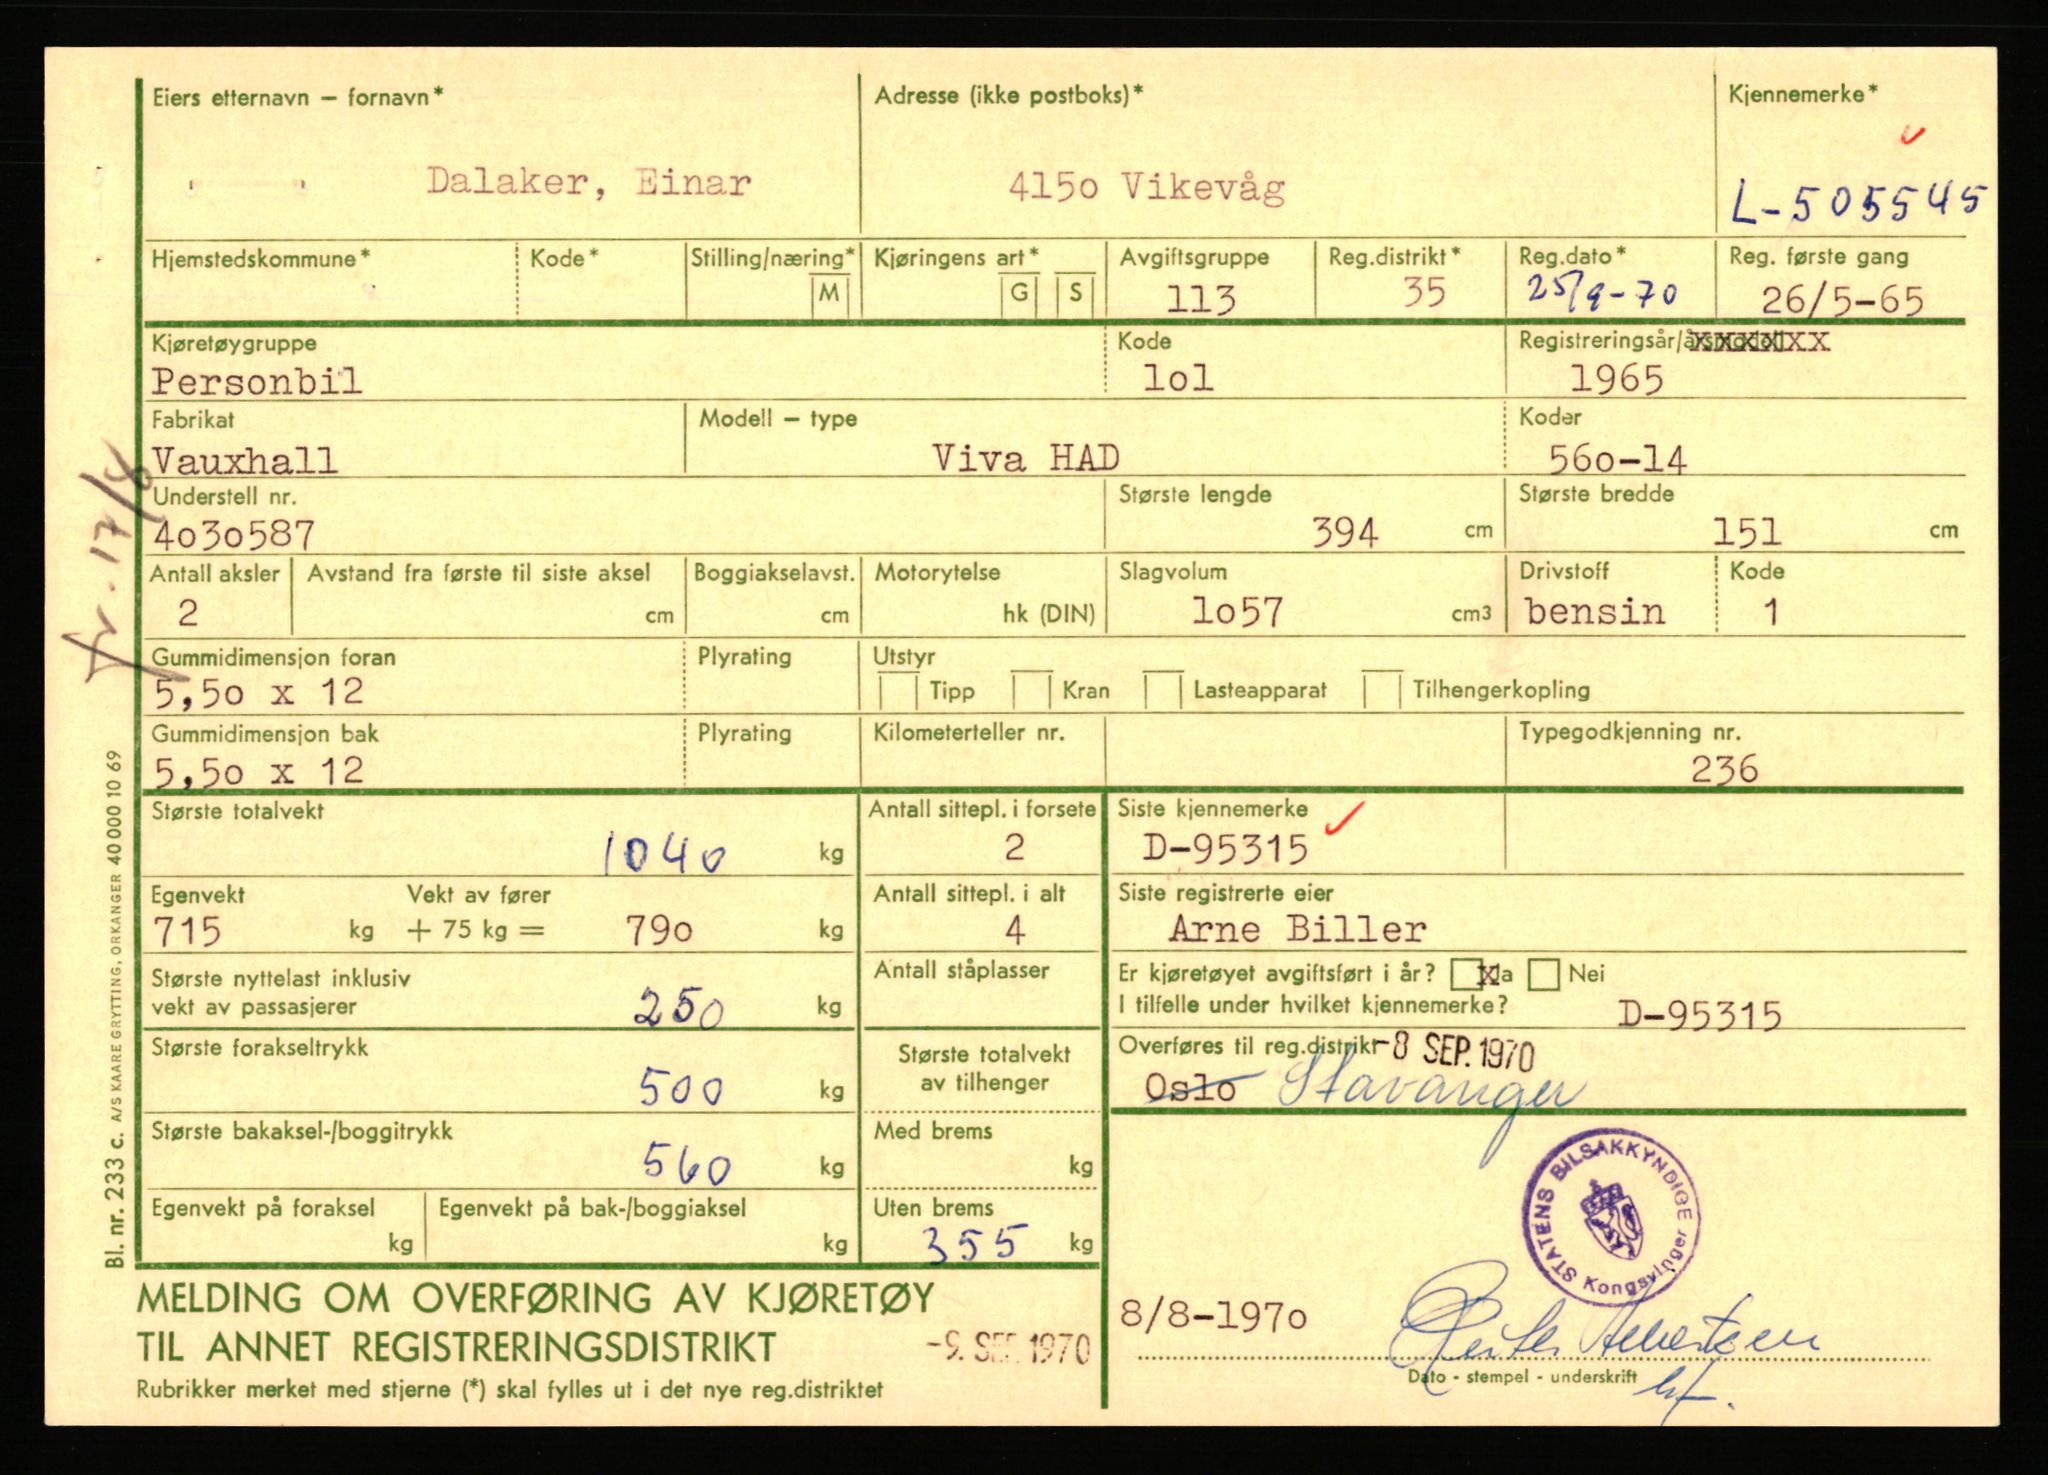 Eiers etternavn – fornavn*
Adresse (ikke postboks)*
Kjennemerke*
Dalaker, Einar
4150 Vikevåg
L-505545
Hjemstedskommune*
Kode*
Stilling/næring*
M
Kjøringens art*
G
S
Avgiftsgruppe
113
Reg.distrikt*
35
Reg.dato*
25/9-70
Reg. første gang
26/5-65
Kjøretøygruppe
Personbil
Kode
lol
Registreringsår/årsmodell
1965
Fabrikat
Vauxhall
Modell – type
Viva HAD
Koder
560-14
Understell nr.
4030587
Største lengde
394 cm
Største bredde
151 cm
Antall aksler
2
Avstand fra første til siste aksel
cm
Boggiakselavst.
cm
Motorytelse
hk (DIN)
Slagvolum
1057 cm3
Drivstoff
bensin
Kode
1
Gummidimensjon foran
5,50 x 12
Plyrating
Utstyr
Tipp
Kran
Lasteapparat
Tilhengerkopling
Gummidimensjon bak
5,50 x 12
Plyrating
Kilometerteller nr.
Typegodkjenning nr.
236
Største totalvekt
1040 kg
Antall sittepl. i forsete
2
Siste kjennemerke
D-95315
Egenvekt
715 kg
Vekt av fører
+ 75 kg = 790 kg
Antall sittepl. i alt
4
Siste registrerte eier
Arne Biller
Største nyttelast inklusiv
vekt av passasjerer
250 kg
Antall ståplasser
Er kjøretøyet avgiftsført i år? x Ja Nei
I tilfelle under hvilket kjennemerke?
D-95315
Største forakseltrykk
500 kg
Største totalvekt
av tilhenger
Overføres til reg.distrikt
-8 SEP. 1970
Oslo Stavanger
Største bakaksel-/boggitrykk
560 kg
Med brems
kg
Egenvekt på foraksel
kg
Egenvekt på bak-/boggiaksel
kg
Uten brems
355 kg
STATENS BILSAKKYNDIGE
Kongsvinger
MELDING OM OVERFØRING AV KJØRETØY
TIL ANNET REGISTRERINGSDISTRIKT
-9. SEP. 1970
8/8-1970
Dato - stempel - underskrift
Rubrikker merket med stjerne (*) skal fylles ut i det nye reg.distriktet
Bl. nr. 233 c. A/S KAARE GRYTTING, ORKANGER 40 000 10 69
fr. 17/8